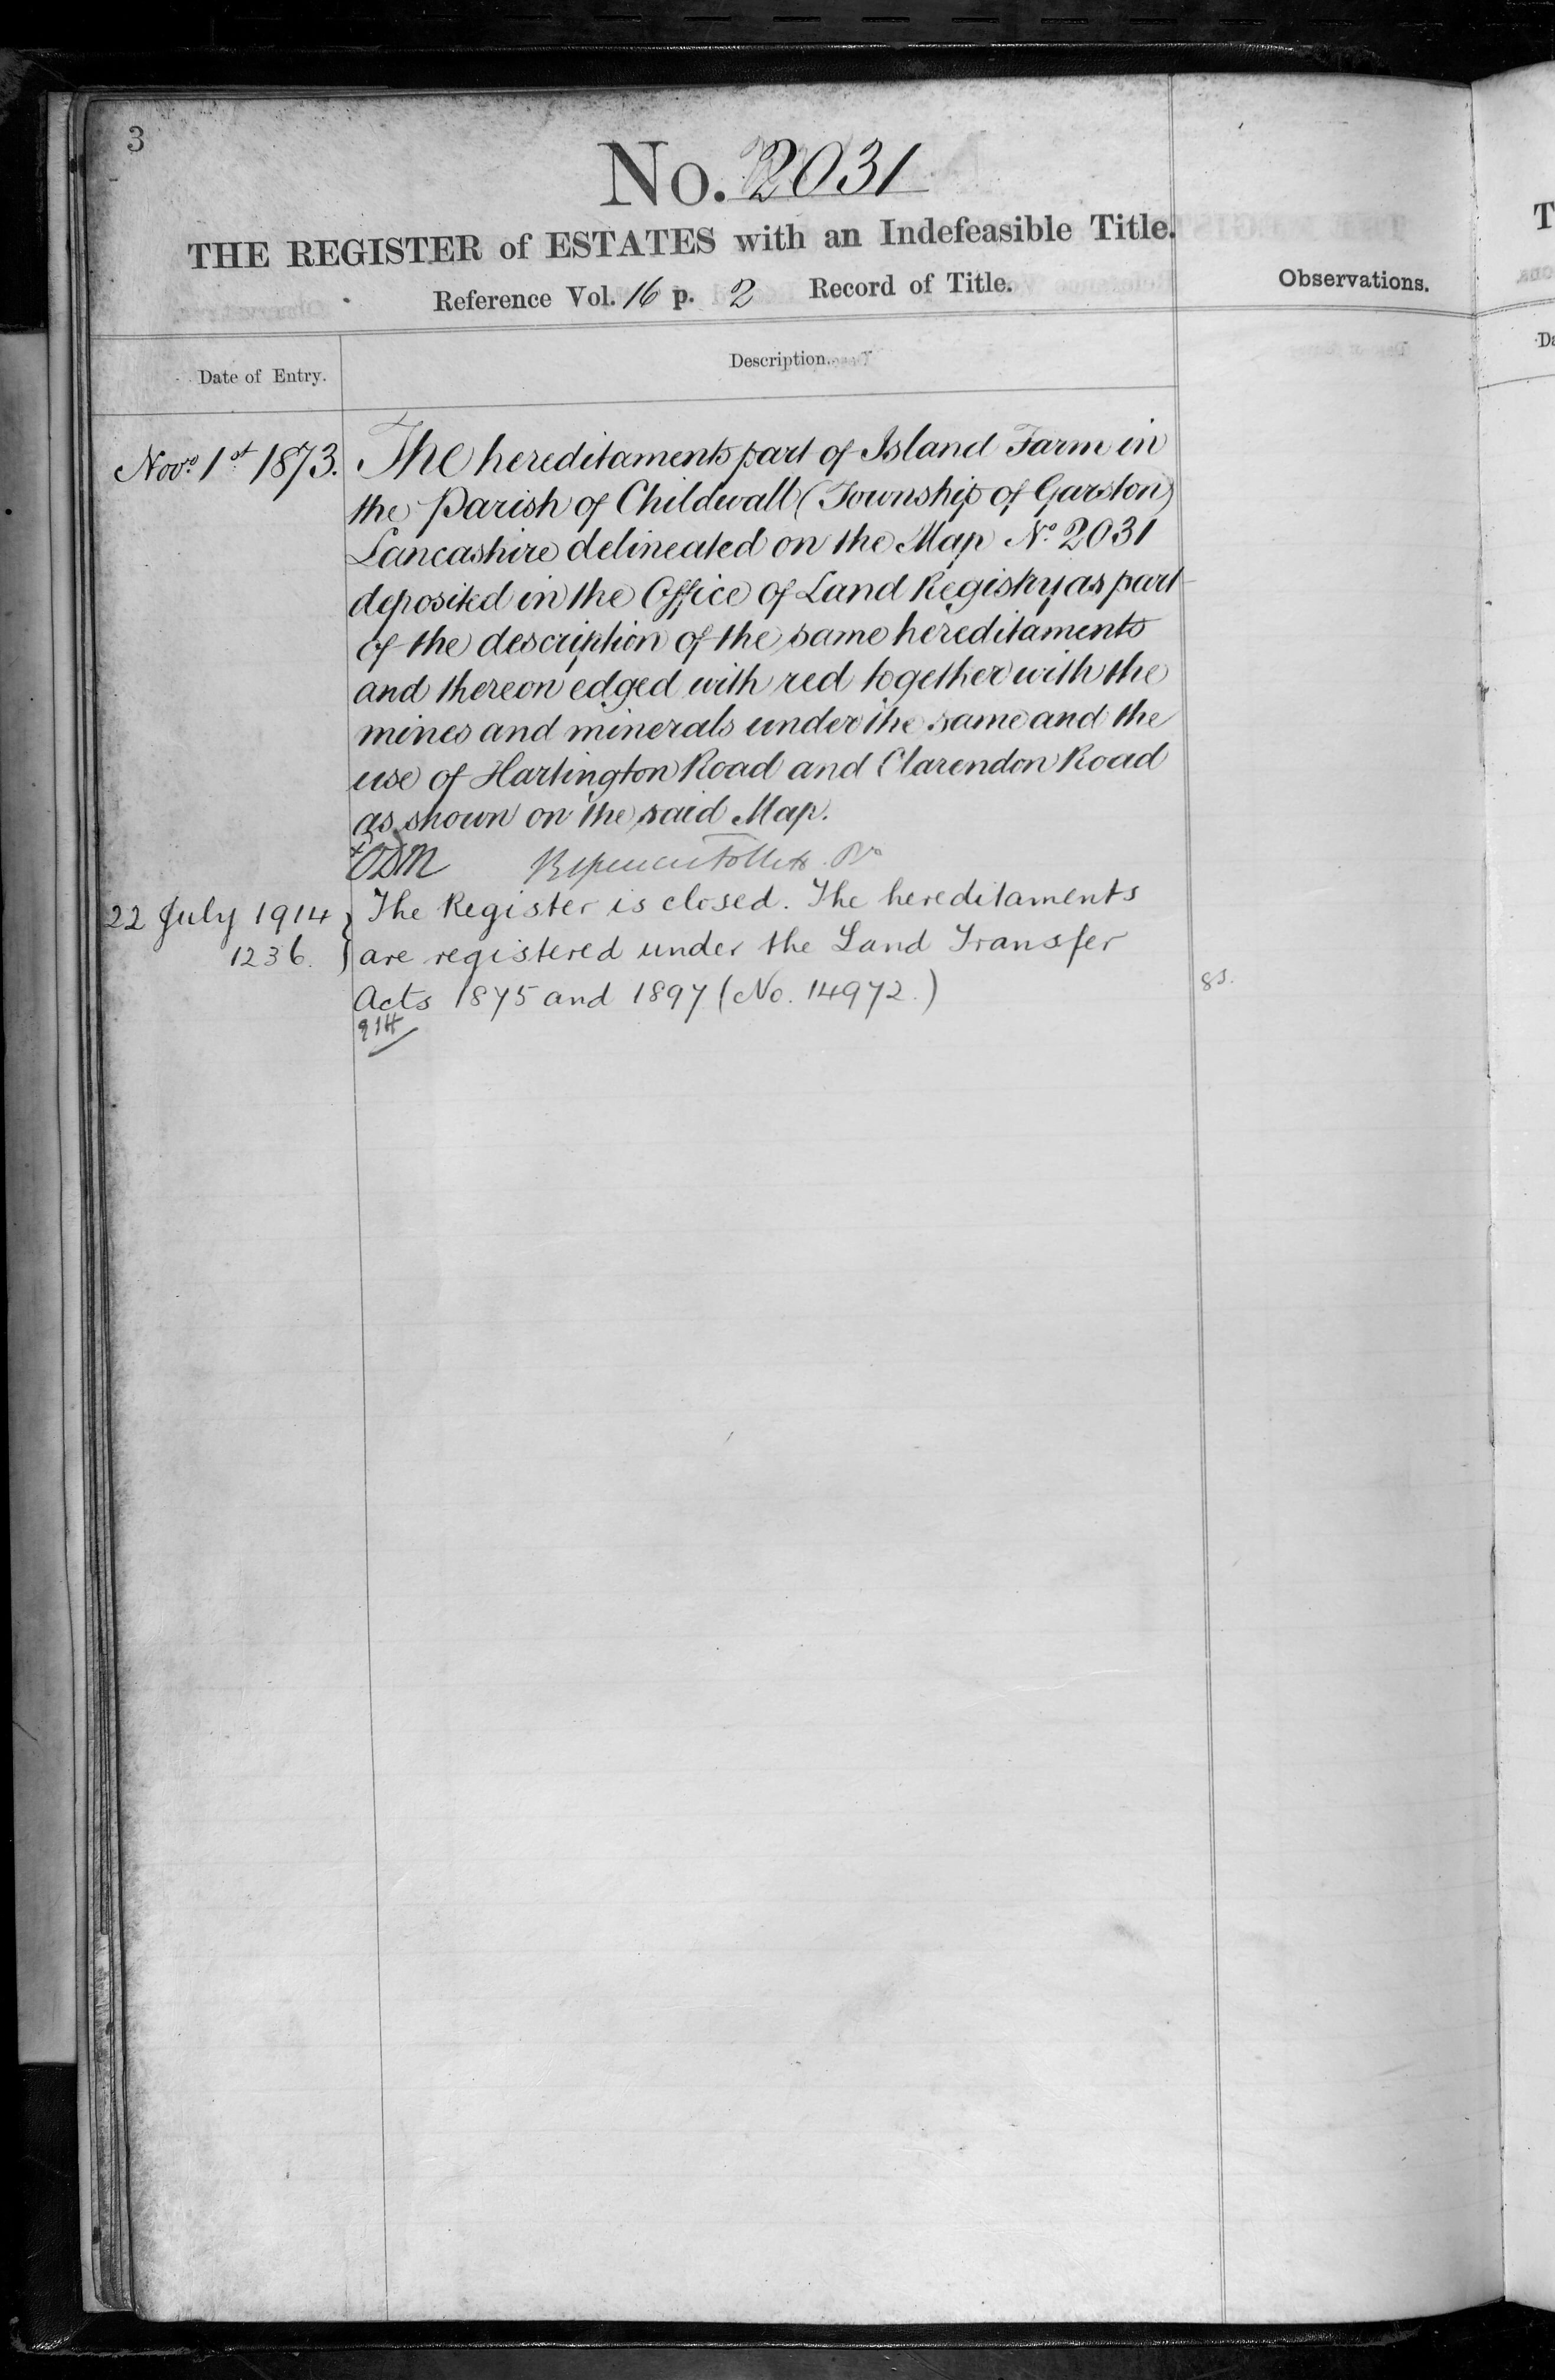 3
No. 2031
THE REGISTER of ESTATES with an Indefeasible Title.
Reference Vol. 16 p. 2 Record of Title.
Observations.
Date of Entry.
Description.
Novr. 1st. 1873.
The hereditaments part of Island Farm in
the Parish of Childwall (Township of Garston)
Lancashire delineated on the Map No. 2031
deposited in the Office of Land Registry as part
of the description of the same hereditaments
and thereon edged with red together with the
mines and minerals under the same and the
use of Hartington Road and Clarendon Road
as shown on the said Map.
22 July 1914
1236.
The Register is closed. The hereditaments
are registered under the Land Transfer
Acts 1875 and 1897 (No. 14972.)